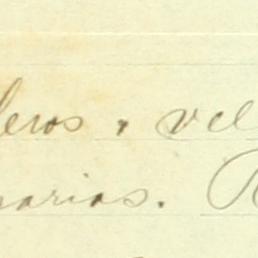 leros, vel
narias. R